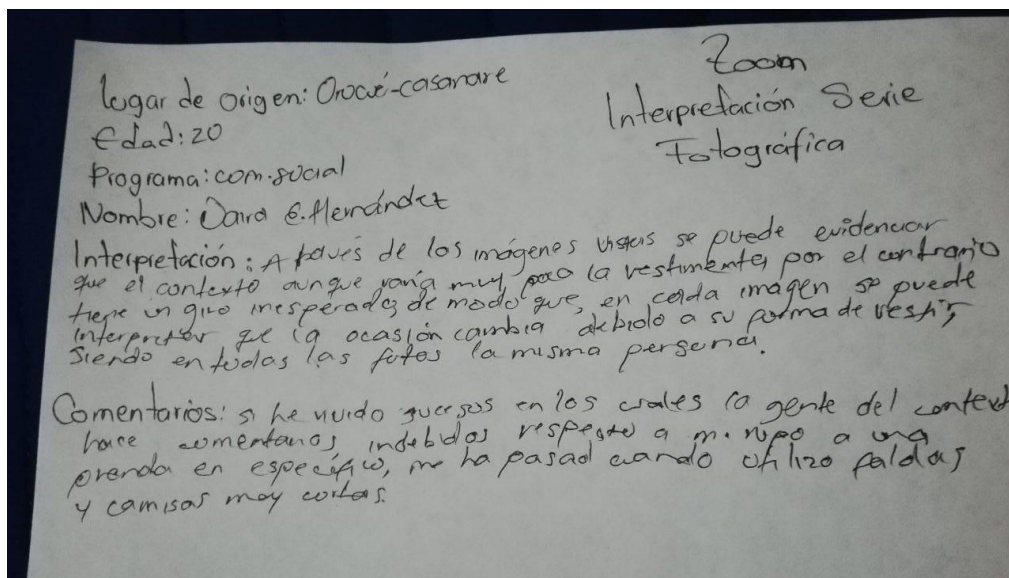 Zoom
Interpretación Serie
Fotográfica
lugar de origen: Orocué-casanare
Edad: 20
Programa: com. social
Nombre: E. Hernández
Interpretación: A través de los imágenes vistas se puede evidenciar
que el contexto aunque varia muy poco la vestimenta, por el contrario
tiene un giro inesperado, de modo que, en cada imágen se puede
interpretar que la ocasión cambia debido a su forma de vestir,
Siendo en todas las fotos la misma persona.
Comentarios: si he vivido sucesos en los cuales la gente del context
hace comentarios indebidos respecto a mi ropo a una
prenda en específico, me ha pasad cuando utilizo faldas
y camisas muy cortas.